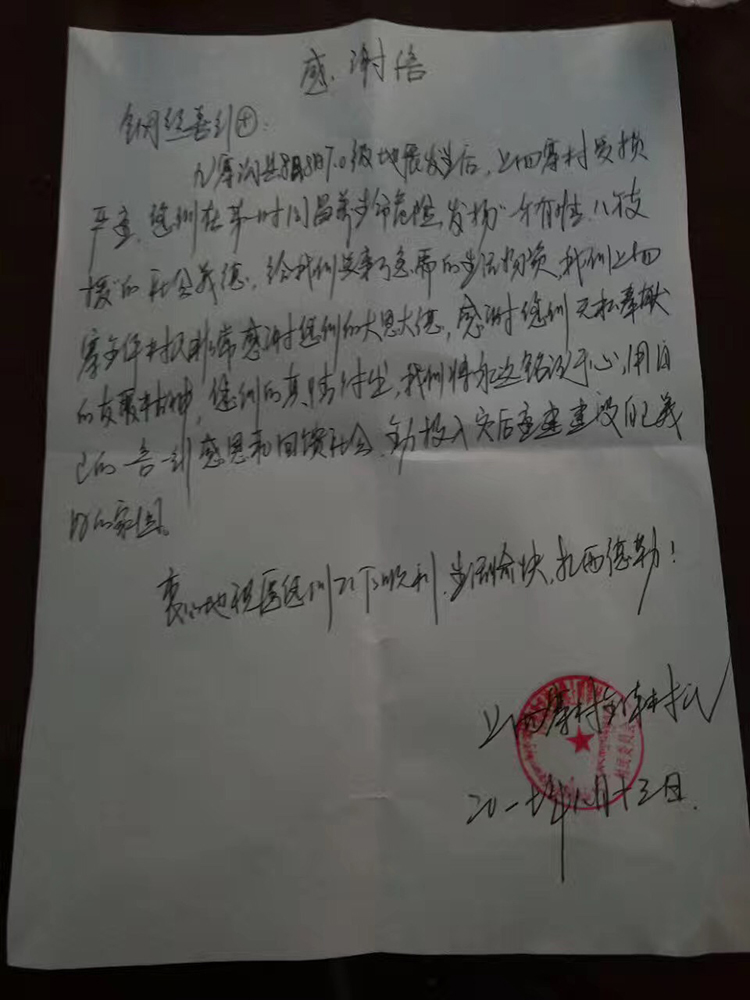 感谢信
九寨沟县8月8日7.0级地震发生后,上四寨村受损
严重,您们在第一时间冒着生命危险,发扬“一方有难,八方支
援”的社会美德,给我们送来了急需的生活物资,我们上四
寨全体村民非常感谢您们的大恩大德,感谢您们无私奉献
的友爱精神,您们的真情付出,我们将永远铭记于心,用自
己的一言一行感恩和回馈社会,投入灾后重建建设自己美
好的家园。
衷心地祝愿您们工作顺利,生活愉快,扎西德勒!
上四寨村全体村民
二0一七年八月十三日